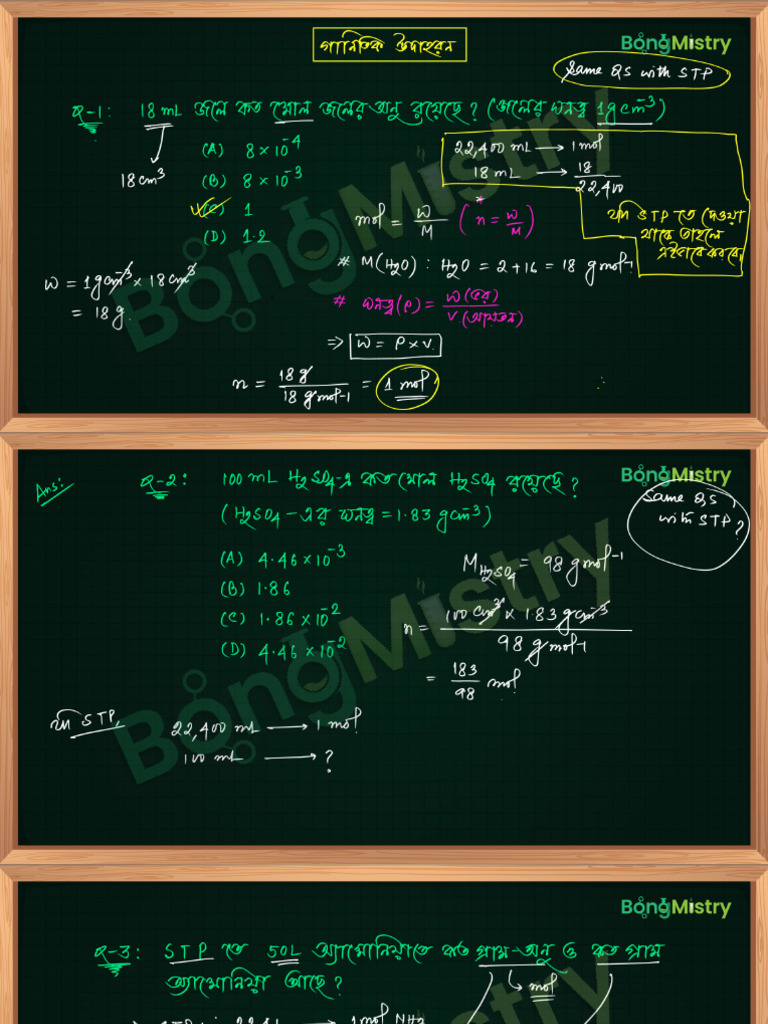 গানিতিক উদাহরন
BongMistry
Same QS with STP
Q-1: 18 mL জলে কত মোল জলের অনু রয়েছে? (জলের ঘনত্ব 1g cm⁻³)
18 cm³
(A) 8 × 10⁻⁴
(B) 8 × 10⁻³
(C) 1
(D) 1.2
22,400 mL → 1 mol
18 mL → 18/22,400
যদি STP তে দেওয়া
থাকে তাহলে
এইভাবে করবে
mol = W/M (n = W/M)
# M(H₂O) : H₂O = 2 + 16 = 18 g mol⁻¹
W = 1g cm⁻³ × 18 cm³
= 18 g.
# ঘনত্ব (ρ) = W (ভর) / V (আয়তন)
⇒ W = ρ × V
n = 18 g / 18 g mol⁻¹ = 1 mol
BongMistry
Ans:
Q-2: 100 mL H₂SO₄-এ কত মোল H₂SO₄ রয়েছে?
(H₂SO₄-এর ঘনত্ব = 1.83 g cm⁻³)
Same QS
with STP?
(A) 4.46 × 10⁻³
(B) 1.86
(C) 1.86 × 10⁻²
(D) 4.46 × 10⁻²
M H₂SO₄ = 98 g mol⁻¹
n = 100 cm³ × 1.83 g cm⁻³ / 98 g mol⁻¹
= 183/98 mol
যদি STP,
22,400 mL → 1 mol
100 mL → ?
BongMistry
Q-3: STP তে 50L অ্যামোনিয়াতে কত গ্রাম-অনু ও কত গ্রাম
অ্যামোনিয়া আছে?
mol